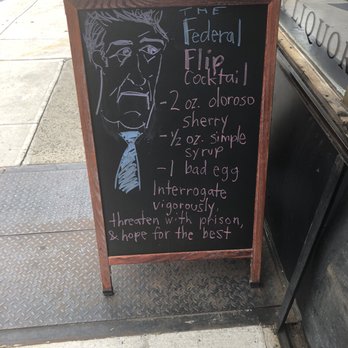 THE
Federal
Flip
Cocktail
- 2 oz. oloroso
sherry
- ½ oz. simple
syrup
- 1 bad egg
Interrogate
vigorously,
threaten with prison,
& hope for the best
LIQUOR